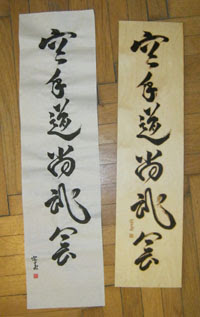 空手道尚武会
空手道尚武会